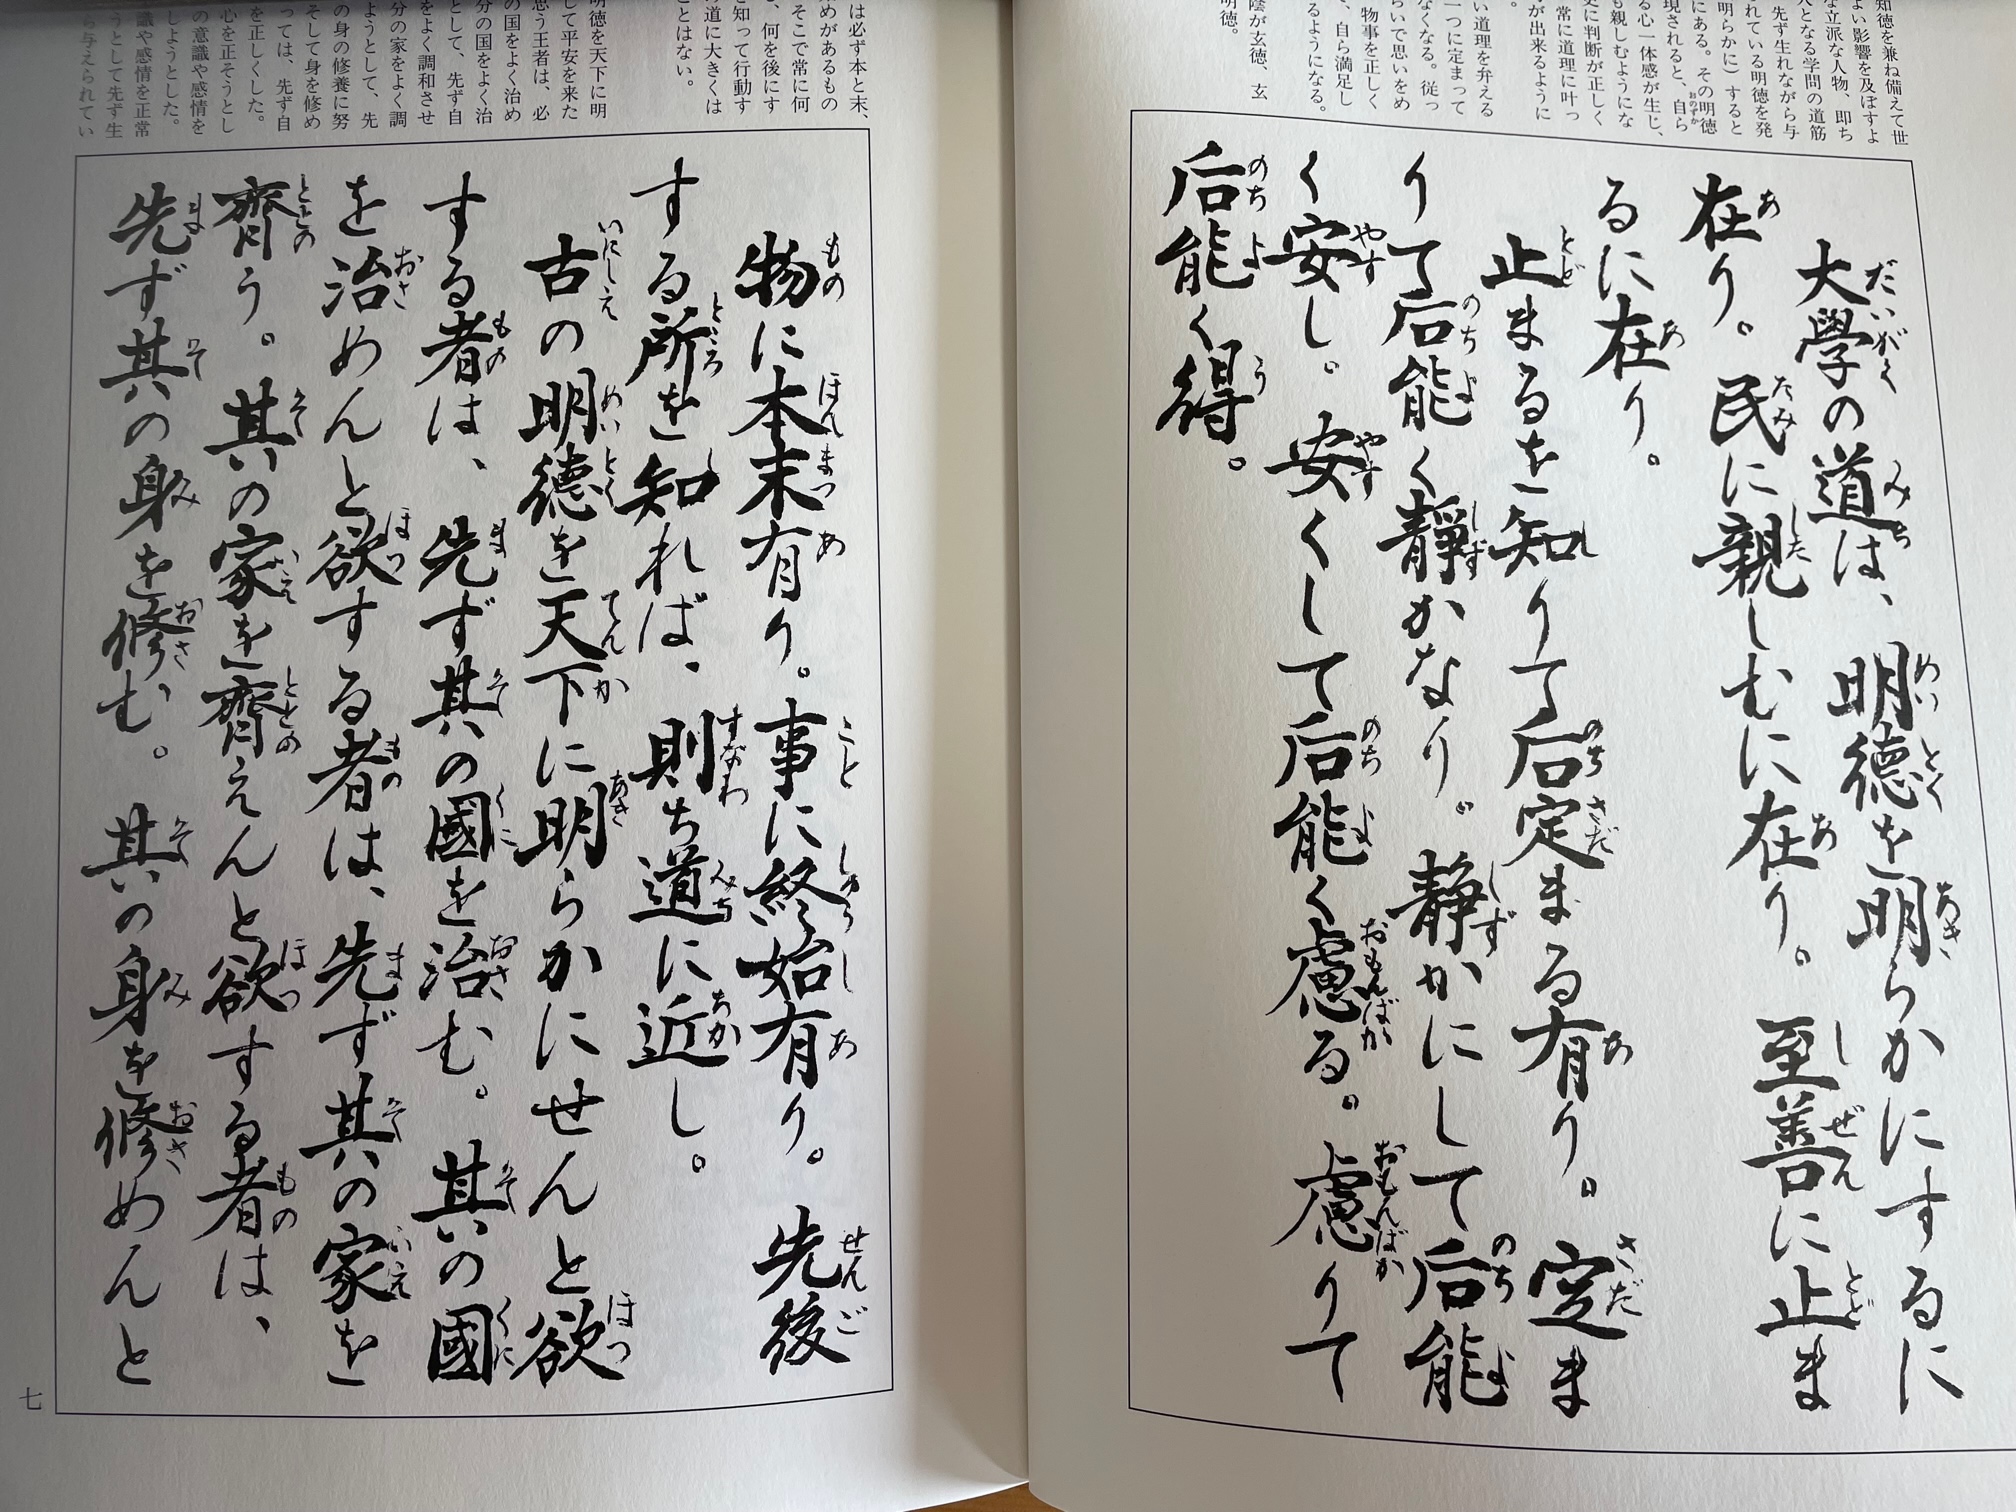 知徳を兼ね備えて世
よい影響を及ぼすよ
な立派な人物、即ち
人となる学問の道筋
先ず生れながら与
れている明徳を発
明らかに）すると
にある。その明徳
現されると、自ら
る心一体感が生じ、
も親しむようにな
に判断が正しく
常に道理に叶っ
が出来るように
い道理を弁える
一つに定まって
なくなる。従っ
らいで思いをめ
物事を正しく
、自ら満足し
るようになる。
陰が玄徳、玄
明徳。
大學の道は、明德を明らかにするに
在り。民に親しむに在り。至善に止ま
るに在り。
止まるを知りて后定まる有り。定ま
りて后能く靜かなり。静かにして后能
く安し。安くして后能く慮る。慮りて
后能く得。
は必ず本と末、
始めがあるもの
そこで常に何
、何を後にす
を知って行動す
の道に大きくは
ことはない。
明徳を天下に明
して平安を来た
思う王者は、必
の国をよく治め
分の国をよく治
として、先ず自
をよく調和させ
分の家をよく調
ようとして、先
の身の修養に努
そして身を修め
っては、先ず自
を正しくした。
心を正そうとし
の意識や感情を
しようとした。
識や感情を正常
うとして先ず生
ら与えられてい
物に本末有り。事に終始有り。先後
する所を知れば、則ち道に近し。
古の明德を天下に明らかにせんと欲
する者は、先ず其の國を治む。其の國
を治めんと欲する者は、先ず其の家を
齊う。其の家を齊えんと欲する者は、
先ず其の身を修む。其の身を修めんと
七